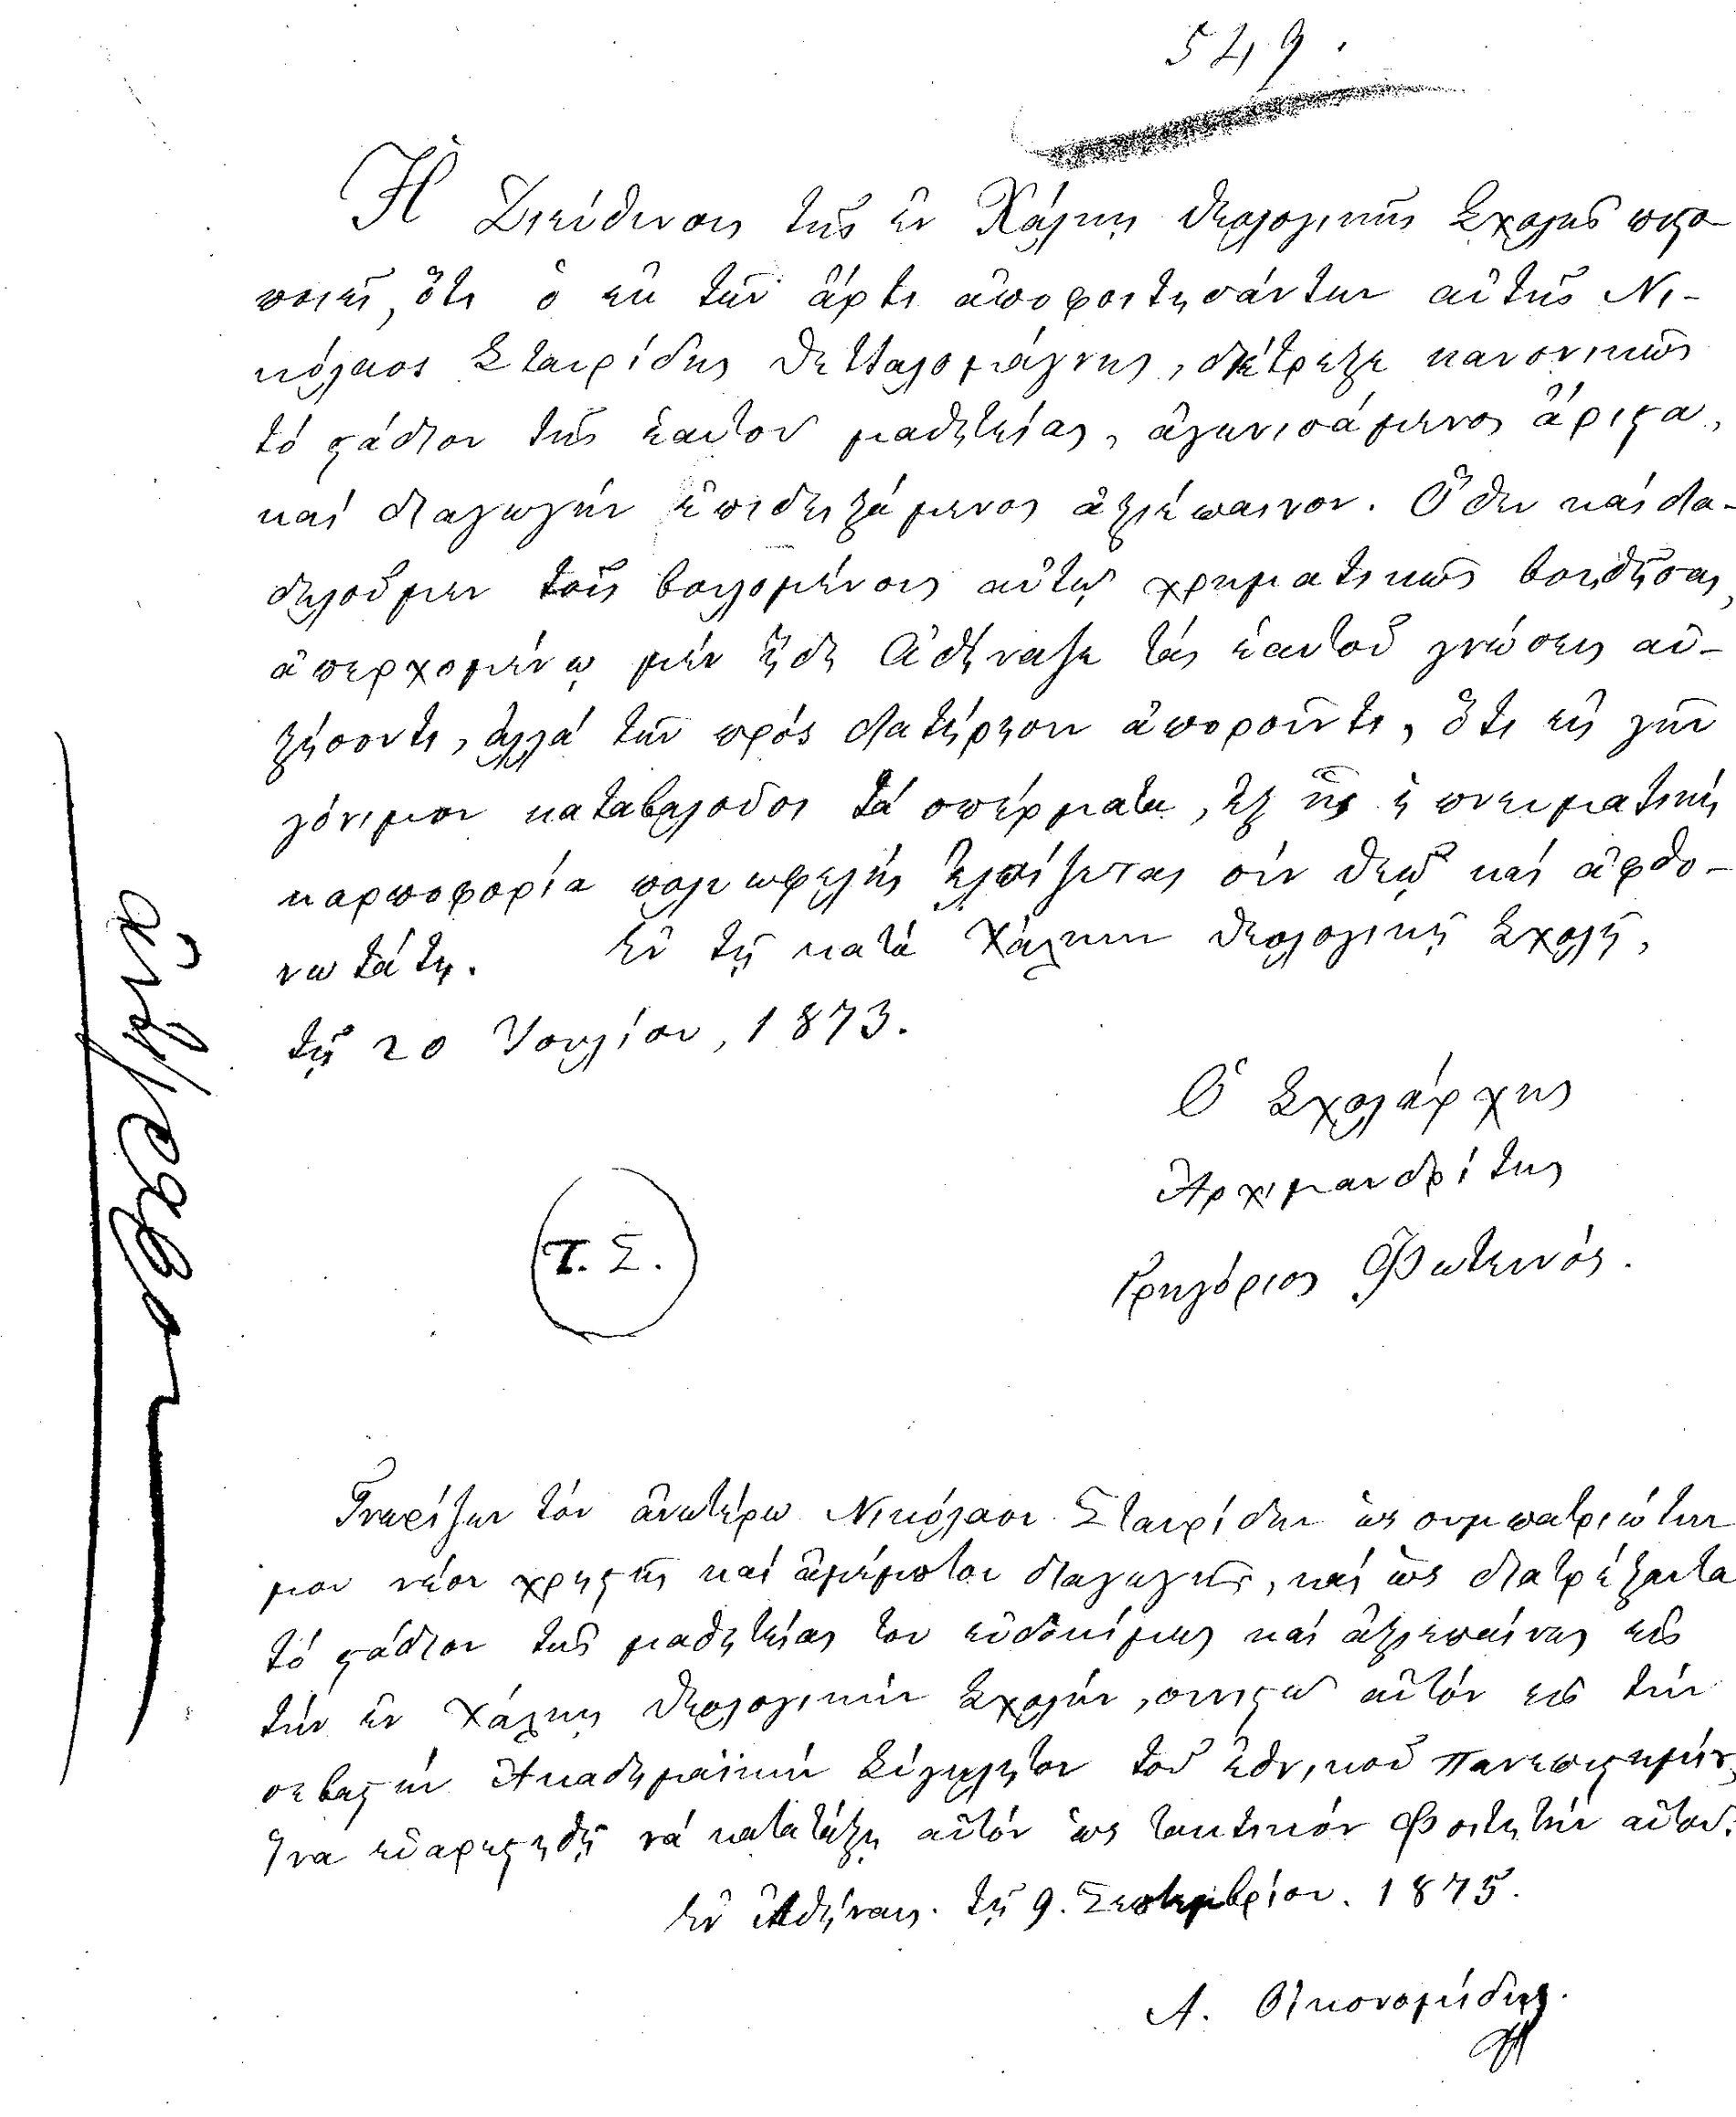 549.
Ἡ Διεύθυνσις τῆς ἐν Χάλκῃ Θεολογικῆς Σχολῆς πιστο-
ποιεῖ, ὅτι ὁ ἐκ τῶν ἄρτι ἀποφοιτησάντων αὐτῆς Νι-
κόλαος Σταυρίδης Θετταλομάγνης, διέτρεξε κανονικῶς
τό στάδιον τῆς ἑαυτοῦ μαθητείας, ἀγωνισάμενος ἄριστα,
καί διαγωγήν ἐπιδειξάμενος ἀξιέπαινον. Ὅθεν καί δια-
δηλοῦμεν τοῖς βουλομένοις αὐτῷ χρηματικῶς βοηθῆσαι,
ἀπερχομένῳ μέν ἤδη Ἀθήναζε τάς ἑαυτοῦ γνώσεις αὐ-
ξήσοντι, ἀλλά τῶν πρός διατήρησιν ἀποροῦντι, ὅτι εἰς γῆν
γόνιμον καταβαλοῦσι τά σπέρματα, ἐξ ἧς ἡ πνευματική
καρποφορία πολυωφελής ἐλπίζεται σύν Θεῷ καί ἀφθο-
νωτάτη. Ἐν τῇ κατά Χάλκην Θεολογικῇ Σχολῇ,
τῇ 20 Ἰουλίου, 1873.
Ὁ Σχολάρχης
Ἀρχιμανδρίτης
Γρηγόριος Φωτεινός.
Τ. Σ.
Γνωρίζων τόν ἀνωτέρω Νικόλαον Σταυρίδην ὡς συμπατριώτην
μου νέον χρηστῆς καί ἀμέμπτου διαγωγῆς, καί ὡς διατρέξαντα
τό στάδιον τῆς μαθητείας του εὐδοκίμως καί ἀξιεπαίνως εἰς
τήν ἐν Χάλκῃ Θεολογικήν Σχολήν, συνιστῶ αὐτόν εἰς τήν
σεβαστήν Ἀκαδημαϊκήν Σύγκλητον τοῦ Ἐθνικοῦ Πανεπιστημίου,
ἵνα εὐαρεστηθῇ νά κατατάξῃ αὐτόν ὡς τακτικόν Φοιτητήν αὐτοῦ.
Ἐν Ἀθήναις. τῇ 9. Σεπτεμβρίου. 1875.
Α. Οἰκονομίδης.